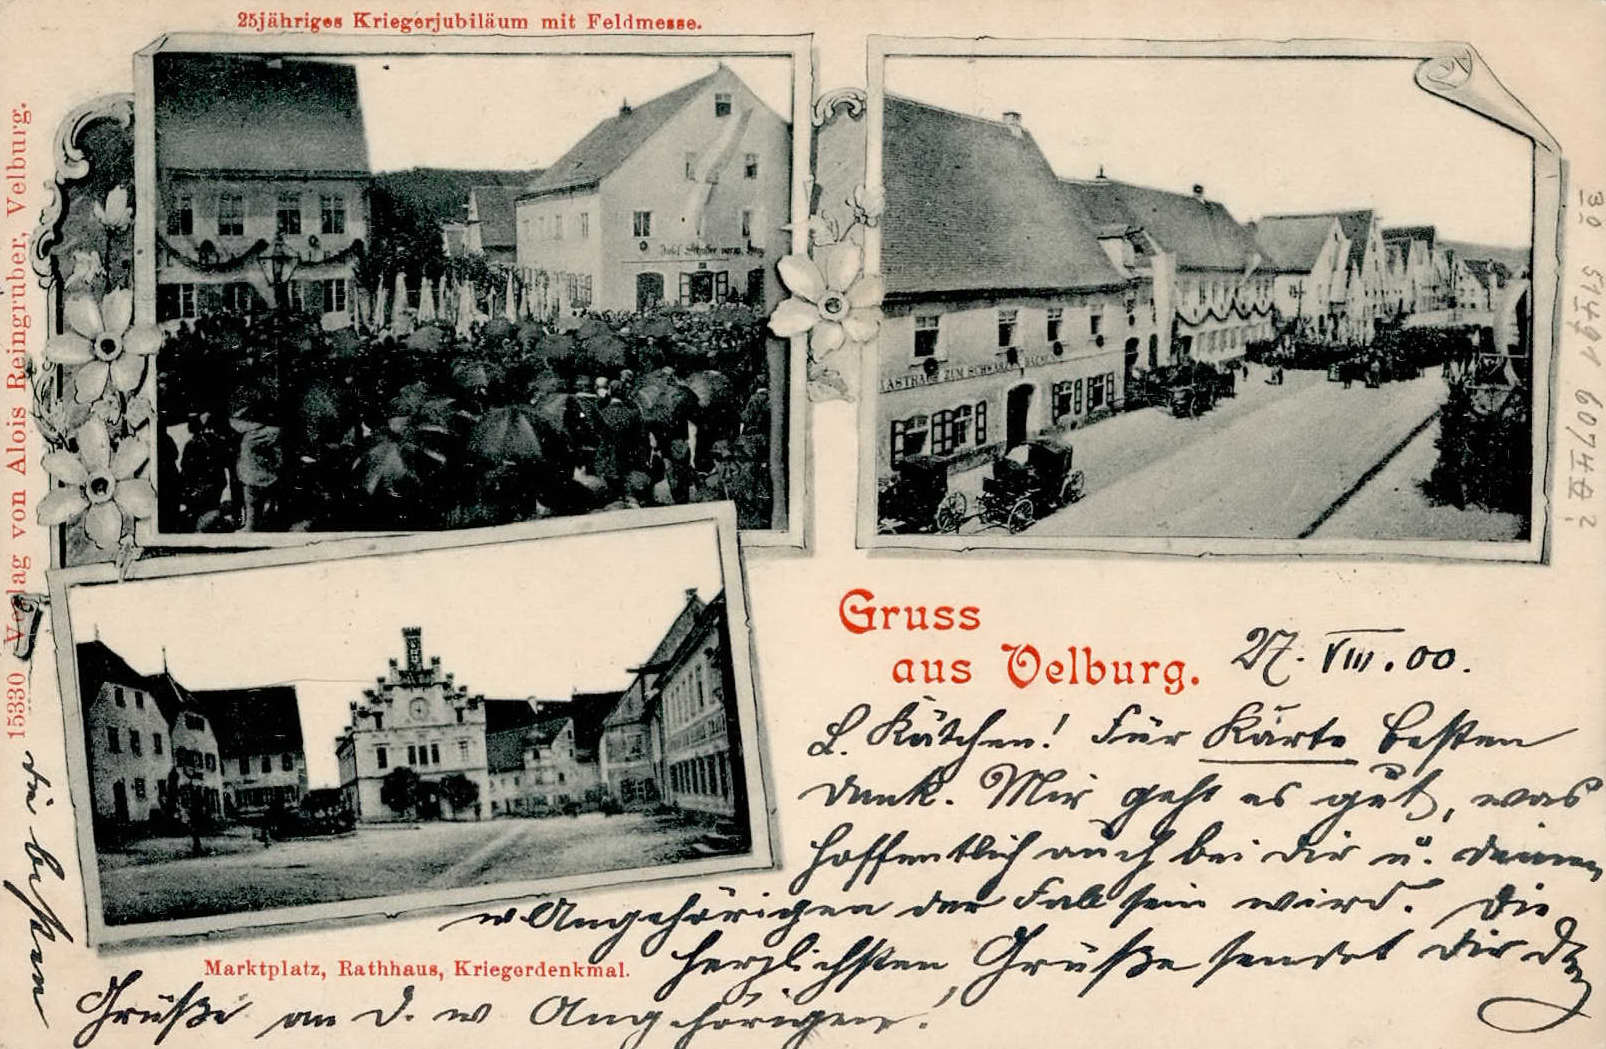 25jähriges Kriegerjubiläum mit Feldmesse.
15330 Verlag von Alois Reingruber, Velburg.
Josef
GASTHAUS ZUM SCHWARZEN
Gruss
aus Velburg.
27. VIII. 00.
L. Kätchen! Für Kärte besten
Dank. Mir geht es gut, was
hoffentlich auch bei dir u. deinen
w Angehörigen der Fall sein wird. Die
herzlichsten Grüße sendet Dir
Marktplatz, Rathhaus, Kriegerdenkmal.
die besten
Grüße an d. w Angehörigen!
30 51491 6074